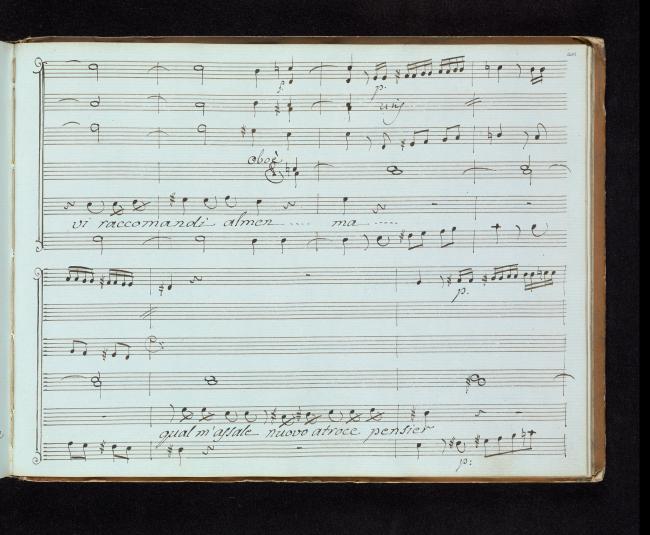 f.
p.
unis
oboè
vi raccomandi almen ..... ma .....
p.
qual m'assale nuovo atroce pensier
p: